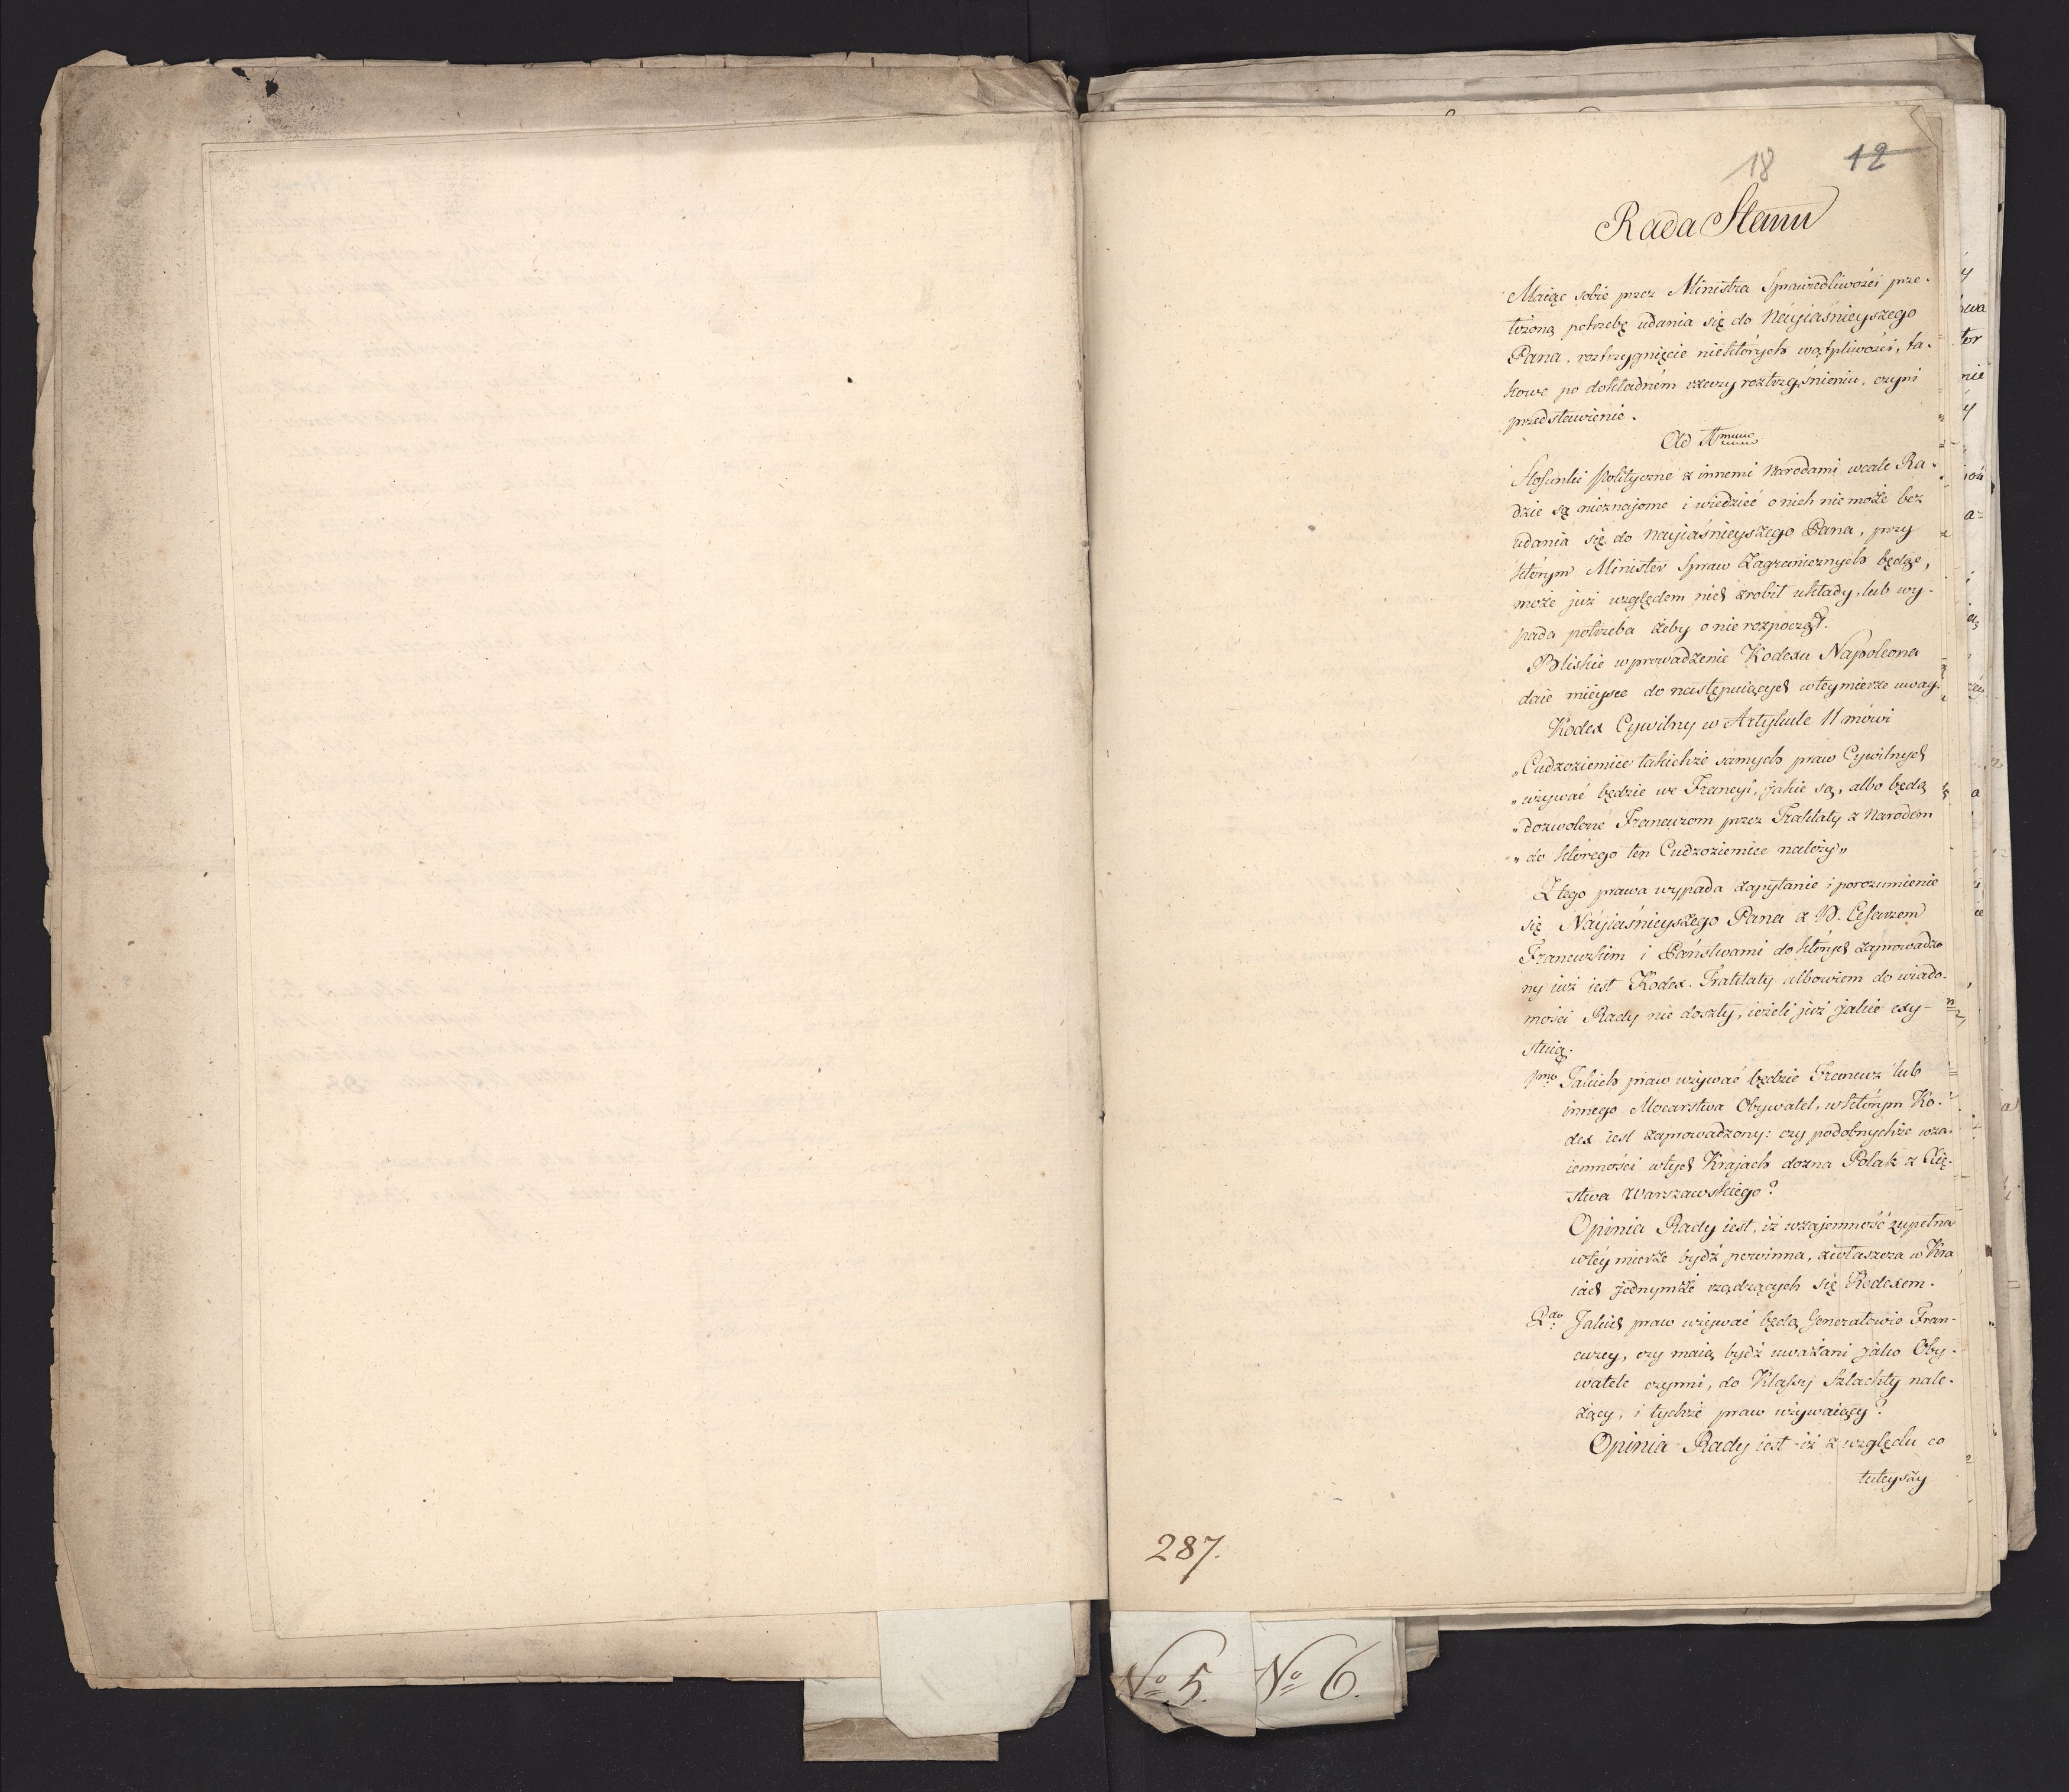 18 12
Rada Stanu
Maiąc sobie przez Ministra Sprawiedliwości prze-
łożoną potrzebę udania się do Náyiaśnieyszego
Pana, roztrzygnięcie niektórych wątpliwości, ta-
kowe po dokładném rzeczy roztrząśnieniu, czyni
przedstawienie.
Ad 1mum
Stosunki polityczne z innemi Narodami wcale Ra-
dzie są nieznajome i wiedzieć o nich nie może bez
udania się do Nayiaśnieyszego Pana, przy
którym Minister Spraw Zagranicznych będąc,
może już względem nich zrobił układy, lub wy-
pada potrzeba żeby o nie rozpoczął.
Bliskie wprowadzenie Kodexu Napoleona
daie mieysce do następuiących w tey mierze uwag.
Kodex Cywilny w Artykule 11 mówi
„Cudzoziemiec takichże samych praw Cywilnych
„używać będzie we Francyi, jakie są, albo będą
„dozwolone Francuzom przez Traktaty z Narodem
„do którego ten Cudzoziemiec należy„
Z tego prawa wypada zapytanie i porozumienie
się Náyiaśnieyszego Pana z N. Cesarzem
Francuzkim i Państwami do których zaprowadzo
ny iuż iest Kodex. Traktaty albowiem do wiado-
mości Rady nie doszły, ieżeli już jakie exy-
stuią.
pmo Jakich praw używać będzie Francuz lub
innego Mocarstwa Obywatel, w którym Ko-
dex iest zaprowadzony: czy podobnychże wza-
iemności w tych Krajach dozna Polak z Xię-
stwa Warszawskiego?
Opinia Rady iest, iż wzajemność zupełna
w téy mierze bydź powinna, zwłaszcza w Kra
iach jednymże rządzących się Kodexem.
2do Jakich praw używać będą Generałowie Fran-
cuzcy, czy maią bydź uważani jako Oby-
watele czynni, do Klassy Szlachty nale-
żący, i tychże praw używaiący?
Opinia Rady iest iż z względu co
tuteyszy
287.
No 5. No 6.